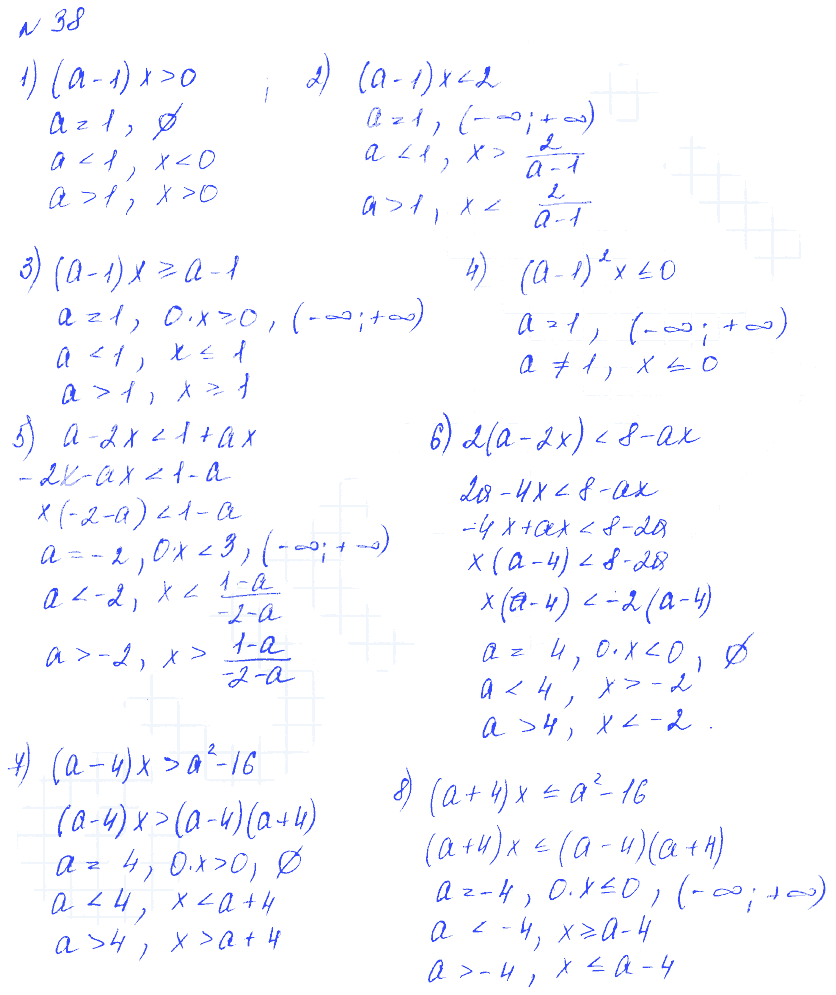 N 38
1) (a-1)x>0 ;
a=1, ∅
a<1, x<0
a>1, x>0
2) (a-1)x<2
a=1, (-∞;+∞)
a<1, x> 2/(a-1)
a>1, x< 2/(a-1)
3) (a-1)x≥a-1
a=1, 0·x≥0, (-∞;+∞)
a<1, x≤1
a>1, x≥1
4) (a-1)²x≤0
a=1, (-∞;+∞)
a≠1, x≤0
5) a-2x<1+ax
-2x-ax<1-a
x(-2-a)<1-a
a=-2, 0·x<3, (-∞;+∞)
a<-2, x< (1-a)/(-2-a)
a>-2, x> (1-a)/(-2-a)
6) 2(a-2x)<8-ax
2a-4x<8-ax
-4x+ax<8-2a
x(a-4)<8-2a
x(a-4)<-2(a-4)
a=4, 0·x<0, ∅
a<4, x>-2
a>4, x<-2.
7) (a-4)x>a²-16
(a-4)x>(a-4)(a+4)
a=4, 0·x>0, ∅
a<4, x<a+4
a>4, x>a+4
8) (a+4)x≤a²-16
(a+4)x≤(a-4)(a+4)
a=-4, 0·x≤0, (-∞;+∞)
a<-4, x≥a-4
a>-4, x≤a-4